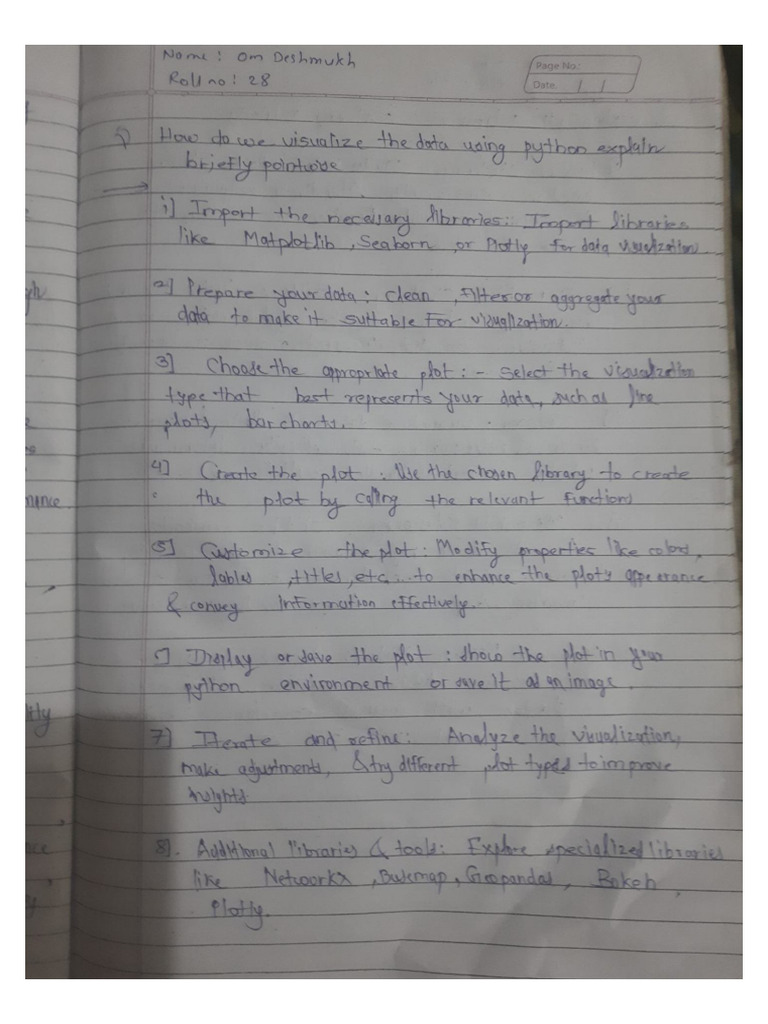 Name : Om Deshmukh
Roll no : 28
Page No.:
Date. / /
1) How do we visualize the data using python explain
briefly pointwise
→ 1] Import the necessary libraries: Import libraries
like Matplotlib , Seaborn , or Plotly for data visualization
2] Prepare your data : clean , filter or aggregate your
data to make it suitable for visualization.
3] Choose the appropriate plot : - select the visualization
type that best represents your data, such as line
plots, bar charts.
4] Create the plot : Use the chosen library to create
the plot by calling the relevant functions
5] Customize the plot : Modify properties like colors,
lables , titles , etc. to enhance the plots appearance
& convey information effectively.
Display or save the plot : show the plot in your
python environment or save it as an image.
7] Iterate and refine: Analyze the visualization,
make adjustments, & try different plot types to improve
insights
8]. Additional libraries & tools: Explore specialized libraries
like Networkx , , Geopandas , Bokeh ,
Plotly.
nance
lity